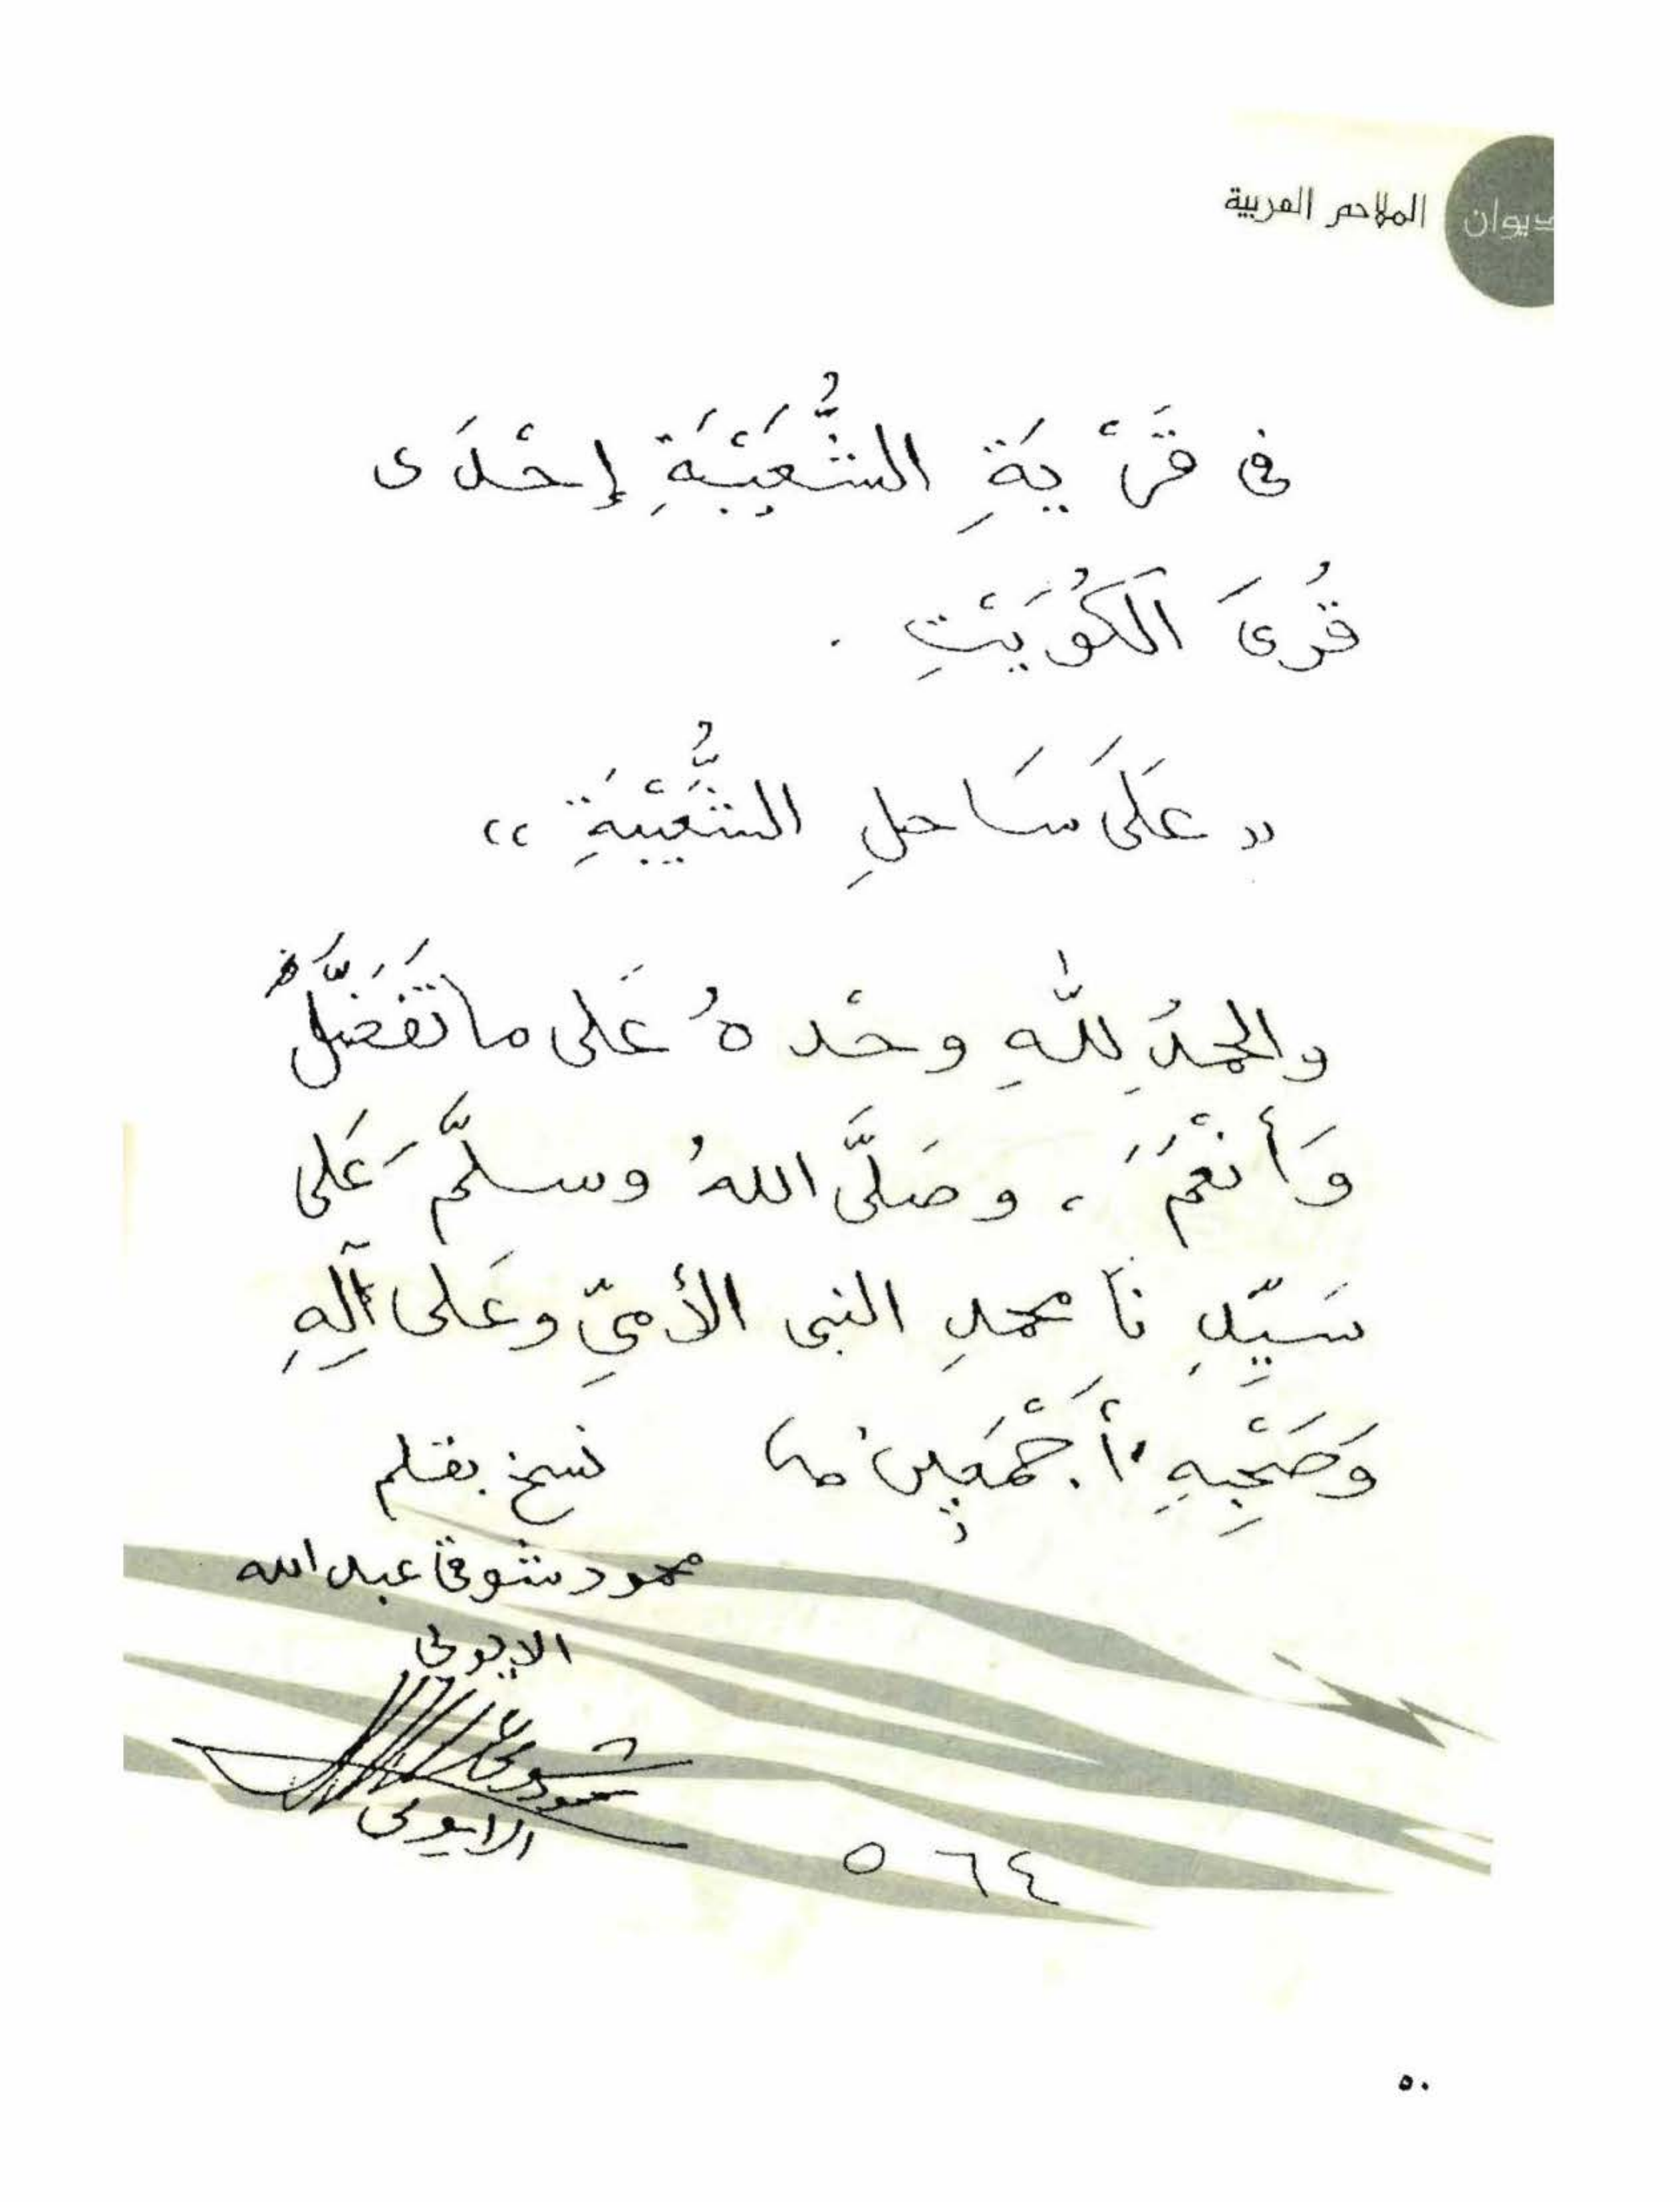 ديوان الملاحم العربية
فى قَرْيَةِ الشُّعَيْبَةِ إِحْدَى
قُرَى الْكُوَيْتِ .
« عَلَى سَاحلِ الشُّعَيْبَةِ »
والحمدُ لِلّٰهِ وحْدهُ عَلى ما تَفَضَّلَ
وَأَنْعَمَ ، وصَلَّى اللهُ وسلَّمَ عَلى
سَيِّدِنَا محمدِ النبى الأمىِّ وعَلى آلِهِ
وَصَحْبِهِ أَجْمَعِين
نسخ بقلم
محمود شوقى عبد الله
الايوبى
الايوبى
٥٦٤
٥٠